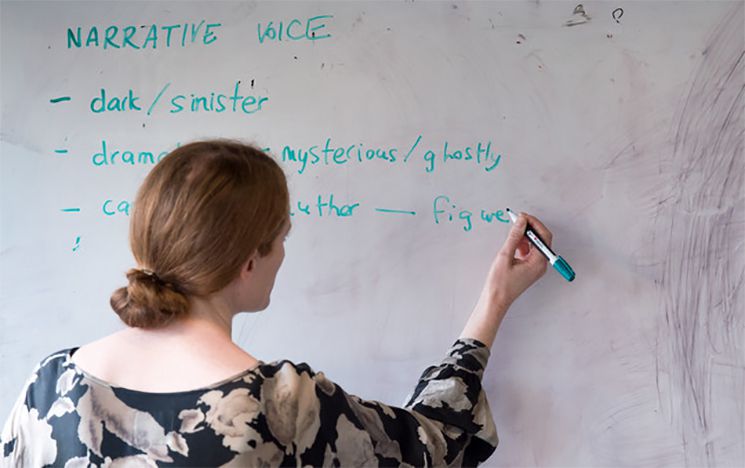 NARRATIVE VOICE
- dark/sinister
- mysterious/ghostly
- author — figure